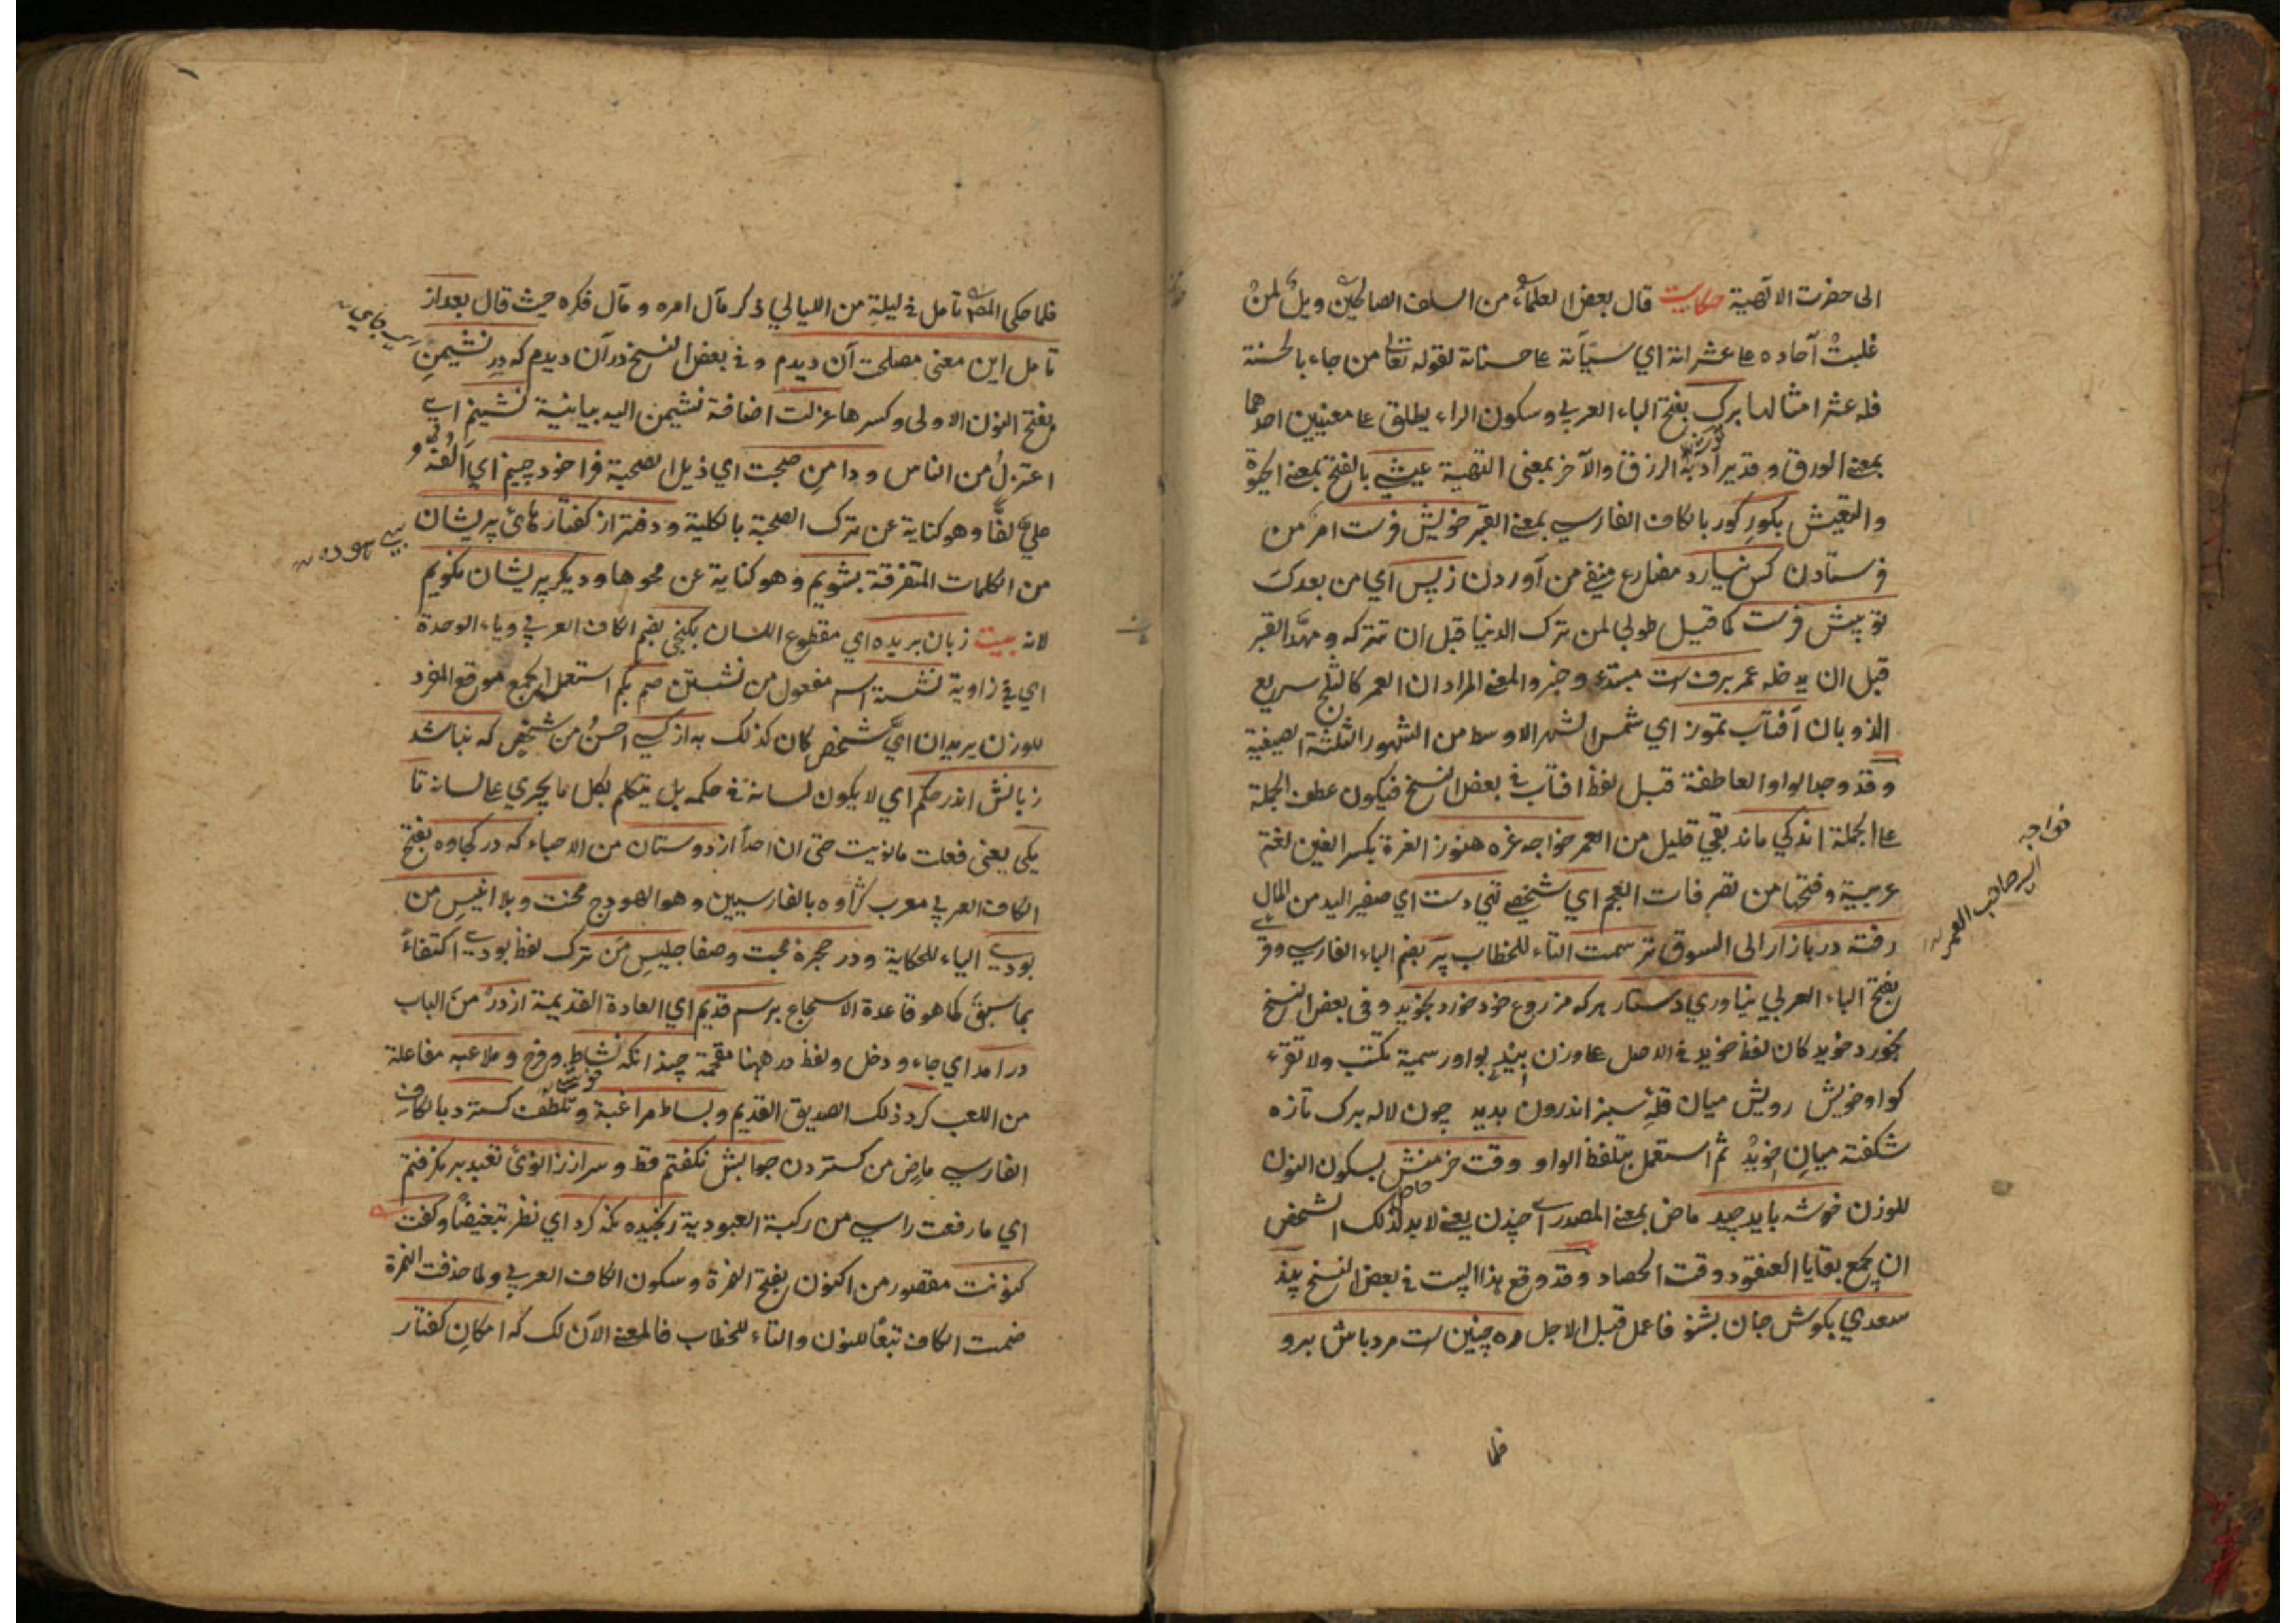 الى حضرت الالٓهية حكايت قال بعض العلماء من السلف الصالحين ويل لمن
غلبت آحاده عا عشراته اي سيّآته عا حسناته لقوله تعالى من جاء بالحسنة
فله عشر امثالها برك بفتح الباء العربي وسكون الراء يطلق عا معنيين احدهما
بمعنى الورق و الرزق والآخر بمعنى التهية عيشي بالفتح بمعنى الحيوة
والتعيش بكور كور بالكاف الفارسي بمعنى القبر خويش فرست امر من
فرستادن كس نيارد مضارع منفي من آوردن ز پس اي من بعدك
تو پيش فرست كما قيل طوبى لمن ترك الدنيا قبل ان تتركه ومهّد القبر
قبل ان يدخله عمر برفست مبتدء وخبر والمعنى المراد ان العمر كالثلج سريع
الذوبان آفتاب تموز اي شمس الشهر الاوسط من الشهور الثلثة الصيفية
وقد وجد الواو العاطفة قبل لفظ افتاب في بعض النسخ فيكون عطف الجملة
عا الجملة اندكي ماند بقي قليل من العمر خواجه غره هنوز الغرة بكسر الغين لغة
عربية وفتحها من تصرفات العجم اي شخصي تهي دست اي صفير اليد من المال
رفته در بازار الى السوق ترسمت التاء للخطاب پر بضم الباء الفارسي وقر
بفتح الباء العربي نياوري دستار هركه مزروع خود خورد بخويد وفى بعض النسخ
بخورد خويد كان لفظ خويد في الاصل عا وزن بيند بواو رسمية تكتب ولا تقرء
كواو خويش رويش ميان قلّۀ سبز اندرون بديد چون لاله برك تازه
شكفته ميان خويد ثم استعمل بتلفظ الواو وقت خرمنش بسكون النون
للوزن خوشه بايد چيد ماض بمعنى المصدر اي چيدن يعنى لابد لذلك الشخص
ان يجمع بقايا العنقود وقت الحصاد وقد وقع هذا البيت في بعض النسخ پند
سعدي بكوش جان بشنو فاعمل قبل الاجل ره چنين است مرد باش برو
خواجه
اي صاحب العمر
فلما
فلما حكى المص تامل في ليلة من الليالي ذكر مآل امره ومآل فكره حيث قال بعد از
تامل اين معنى مصلحت آن ديدم وفي بعض النسخ در آن ديدم كه در نشيمن
بفتح النون الاولى وكسرها عزلت اضافة نشيمن اليه بيانية نشينم اي
اعتزل من الناس ودامن صحبت اي ذيل الصحبة فراخود چينم اي الفّه و
عليّ لفّا وهو كناية عن ترك الصحبة بالكلية ودفتر از كفتارهاى پريشان
بي هوده
من الكلمات المتفرقة بشويم وهو كناية عن محوها وديكر پريشان نكويم
لانه بيت زبان بريده اي مقطوع اللسان بكنجي بضم الكاف العربي وياء الوحدة
اي في زاوية نشسته اسم مفعول من نشستن صم بكم استعمل الجمع موقع المفرد
للوزن يريد ان ايّ شخص كان كذلك به از كسي احسن من شخص كه نباشد
زبانش اندر حكم اي لا يكون لسانه في حكمه بل يتكلم بكل ما يجري عا لسانه تا
يكى يعنى فعلت ما نويت حتى ان احداً از دوستان من الاحباء كه در كجاوه بفتح
الكاف العربي معرب كژاوه بالفارسيين وهو الهودج محنت وبلا انيس من
بودي الياء للحكاية ودر حجرۀ محبت وصفا جليس من ترك لفظ بودي اكتفاءً
بما سبق كما هو قاعدة الاسجاع برسم قديم اي العادة القديمة از در من الباب
درامد اي جاء ودخل ولفظ در ههنا مقحمة چندانكه نشاط وفرح وملاعبه مفاعلة
من اللعب كرد ذلك الصديق القديم وبساط مراغبة وتلطف كسترد بالكاف
الفارسي ماض من كستردن جوابش نكفتم قط وسر از زانوى تعبد بر نكرفتم
اي ما رفعت راسي من ركبة العبودية رنجيده نكه كرد اي نظر تبغيضاً وكفت
كنونت مقصور من اكنون بفتح الهمزة وسكون الكاف العربي ولما حذفت الهمزة
ضمت الكاف تبعاً للنون والتاء للخطاب فالمعنى الآن لك كه امكان كفتار